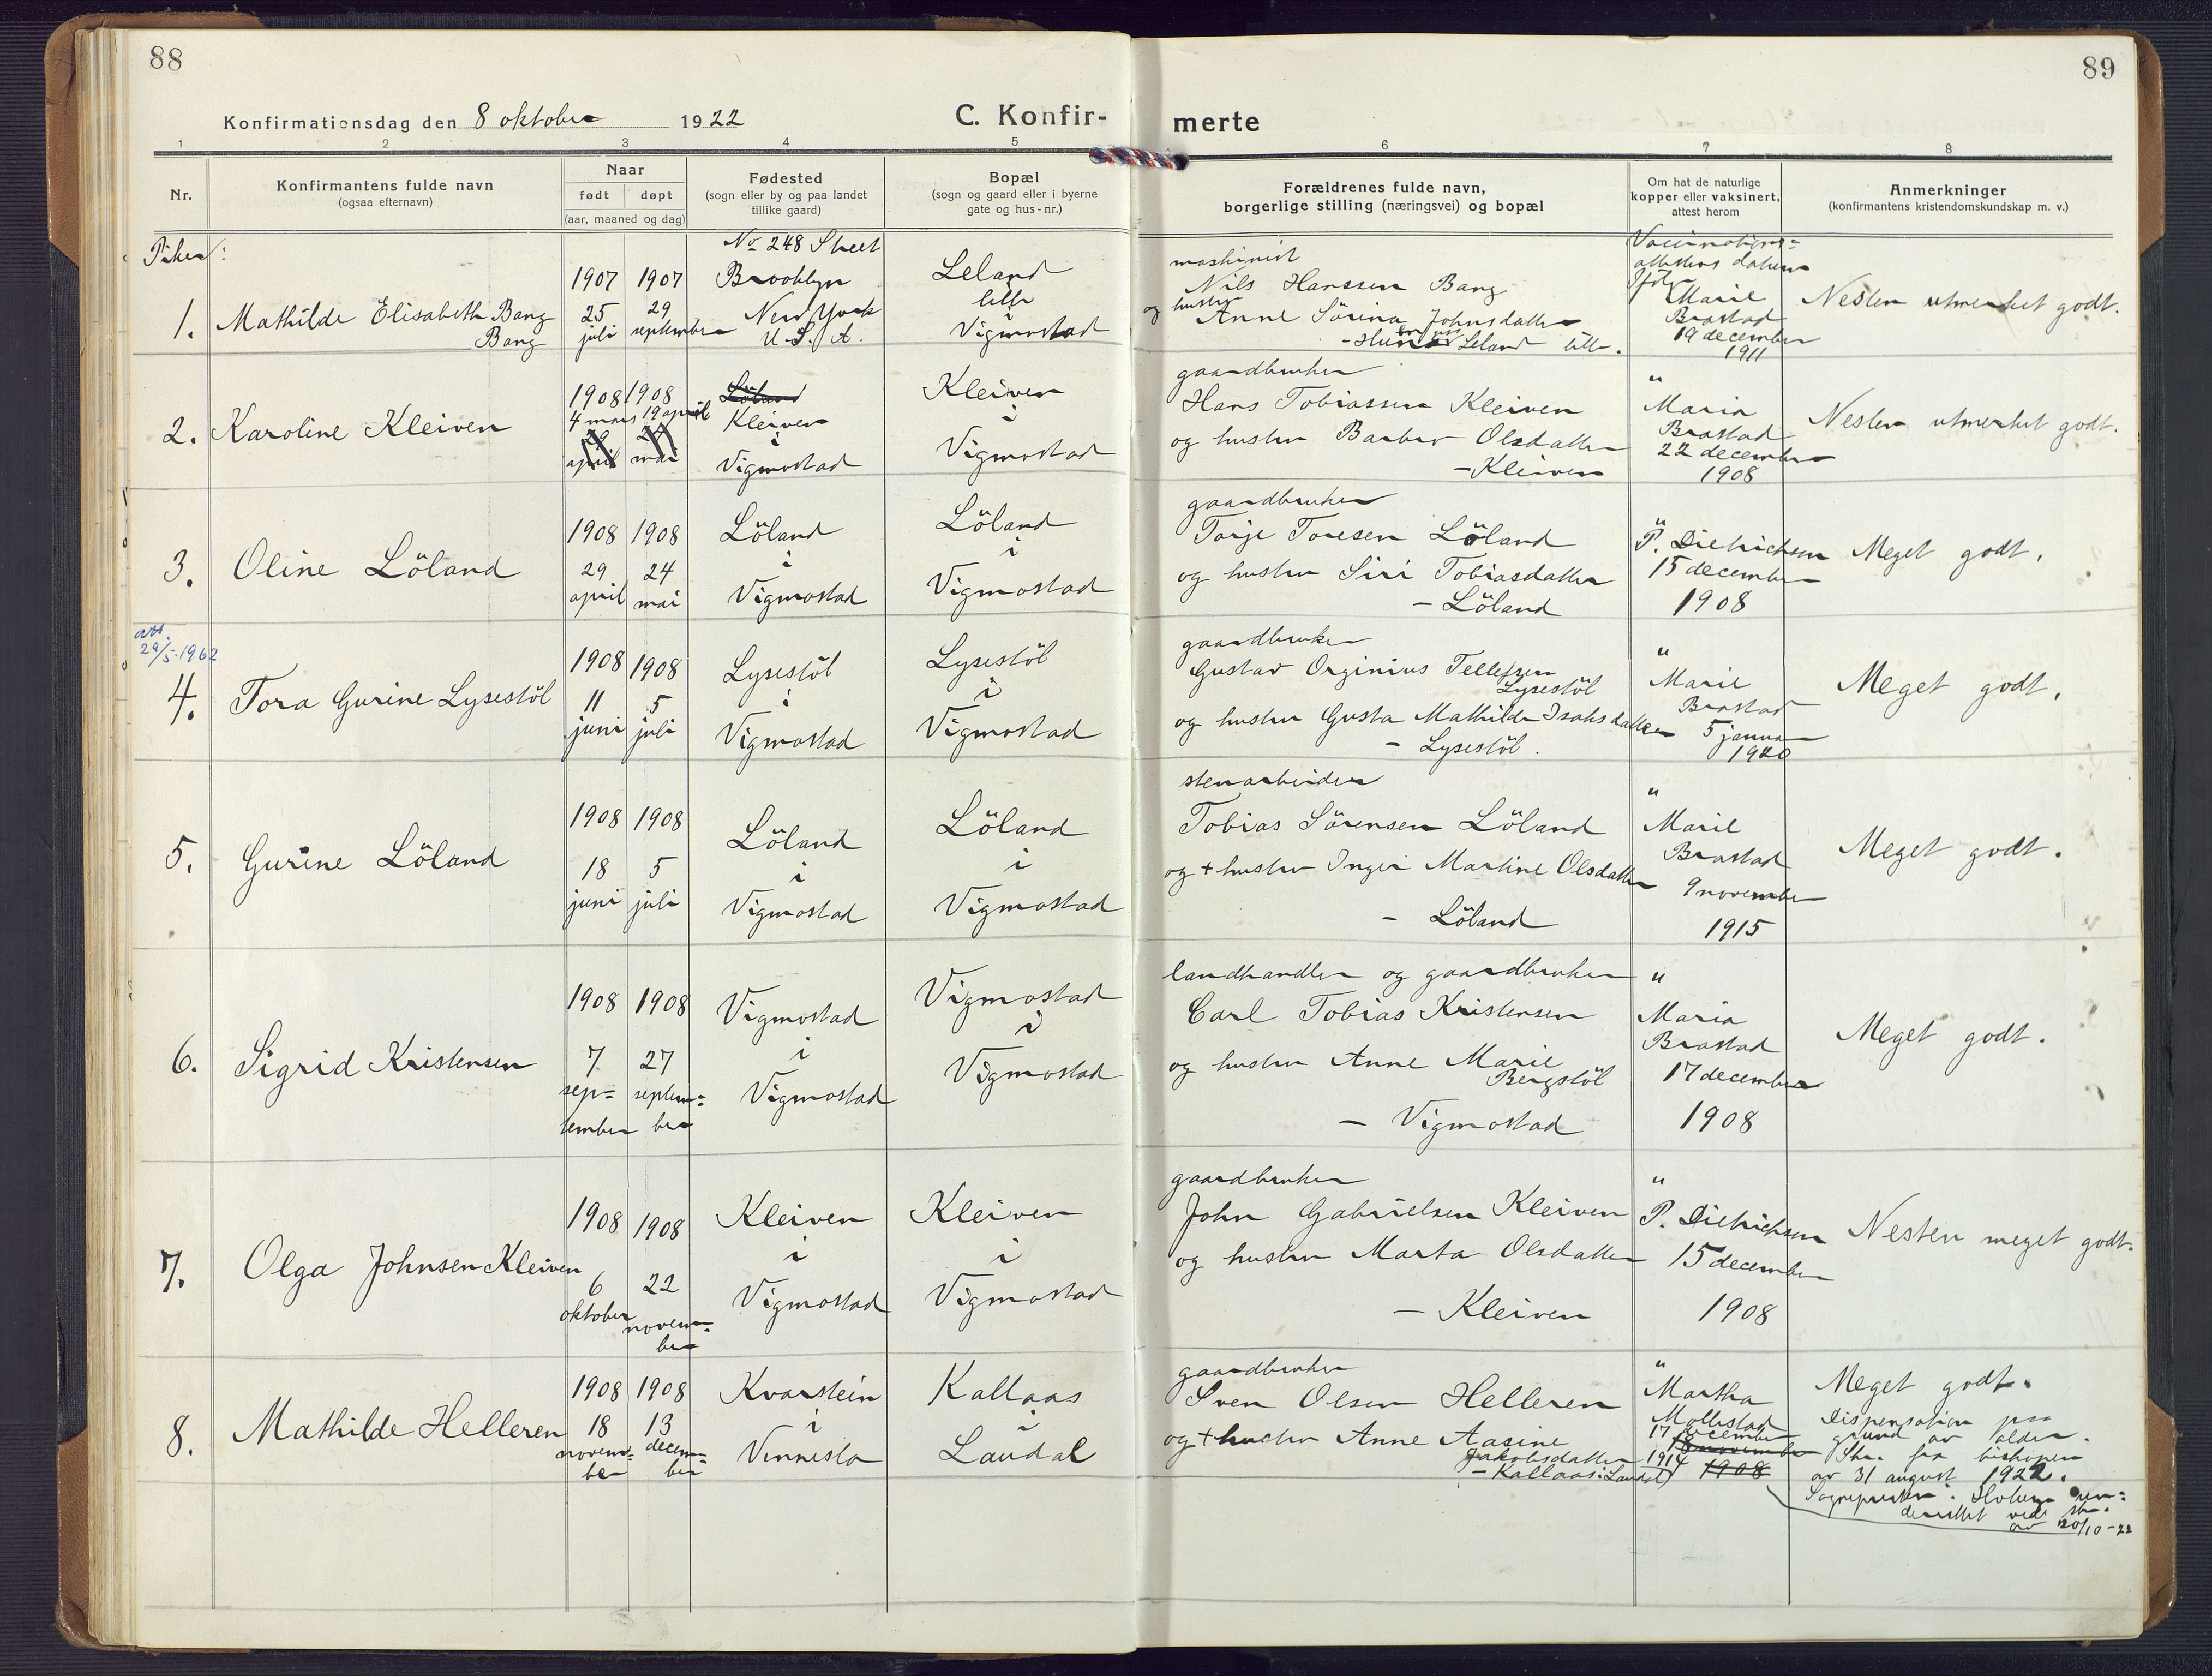 88
89
Konfirmationsdag den 8 oktober 1922
C. Konfir-
merte
1 2 3 4 5 6 7 8
Nr.
Konfirmantens fulde navn
(ogsaa efternavn)
Naar
født døpt
(aar, maaned og dag)
Fødested
(sogn eller by og paa landet
tillike gaard)
Bopæl
(sogn og gaard eller i byerne
gate og hus-nr.)
Forældrenes fulde navn,
borgerlige stilling (næringsvei) og bopæl
Om hat de naturlige
kopper eller vaksinert,
attest herom
Anmerkninger
(konfirmantens kristendomskundskap m. v.)
Piker:
1.
Mathilde Elisabeth Bang
Bang
1907
25
juli
1907
29
september
No 248 Street
Brooklyn
New York
U.S.A.
Leland
lille
i
Vigmostad
maskinist
Nils Hanssen Bang
og hustru
Anne Sörina Johnsdatter
Leland lille.
Vaccinations=
attestens datum
Marie
Brastad
19 december
1911
Nesten utmerket godt.
2.
Karoline Kleiven
1908
4 mars
april
1908
19 april
mai
Kleiven
i
Vigmostad
Kleiven
i
Vigmostad
gaardbruker
Hans Tobiassen Kleiven
og hustru Barbro Olsdatter
- Kleiven
"
Maria
Brastad
22 december
1908
Nesten utmerket godt.
3.
Oline Löland
1908
29
april
1908
24
mai
Löland
i
Vigmostad
Löland
i
Vigmostad
gaardbruker
Torje Toresen Löland
og hustru Siri Tobiasdatter
- Löland
"
P. Dietrichsen
15 december
1908
Meget godt.
att.
29/5-1962
4.
Tora Gurine Lysestöl
1908
11
juni
1908
5
juli
Lysestöl
i
Vigmostad
Lysestöl
i
Vigmostad
gaardbruker
Gustav Orginius Tellefsen
Lysestöl
og hustru Gusta Mathilde Isaksdatter
- Lysestöl.
"
Marie
Brastad
5 januar
1920
Meget godt.
5.
Gurine Löland
1908
18
juni
1908
5
juli
Löland
i
Vigmostad
Löland
i
Vigmostad
stenarbeider
Tobias Sörensen Löland
og + hustru Inger Martine Olsdatter
- Löland
"
Marie
Brastad
9 november
1915
Meget godt.
6.
Sigrid Kristensen
1908
7
sep=
tember
1908
27
septem=
ber
Vigmostad
i
Vigmostad
Vigmostad
i
Vigmostad
landhandler og gaardbruker
Carl Tobias Kristensen
og hustru Anne Marie
Bergstöl
- Vigmostad
"
Maria
Brastad
17 december
1908
Meget godt.
7.
Olga Johnsen Kleiven
1908
6
oktober
1908
22
novem=
ber
Kleiven
i
Vigmostad
Kleiven
i
Vigmostad
gaardbruker
John Gabrielsen Kleiven
og hustru Marta Olsdatter
- Kleiven
"
P. Dietrichsen
15 december
1908
Nesten meget godt.
8.
Mathilde Helleren
1908
18
novem=
ber
1908
13
decem=
ber
Kvarstein
i
Vennesla
Kallaas
i
Laudal
gaardbruker
Sven Olsen Helleren
og + hustru Anne Aasine
Jakobsdatter
- Kallaas i Laudal)
"
Martha
Mollestad
17 december
1914
1908
Meget godt.
Dispensation paa
grund av alder.
Skr. fra biskopen
av 31 august 1922.
Sognepresten i Holum un=
derrettet ved skr.
av 20/10-22